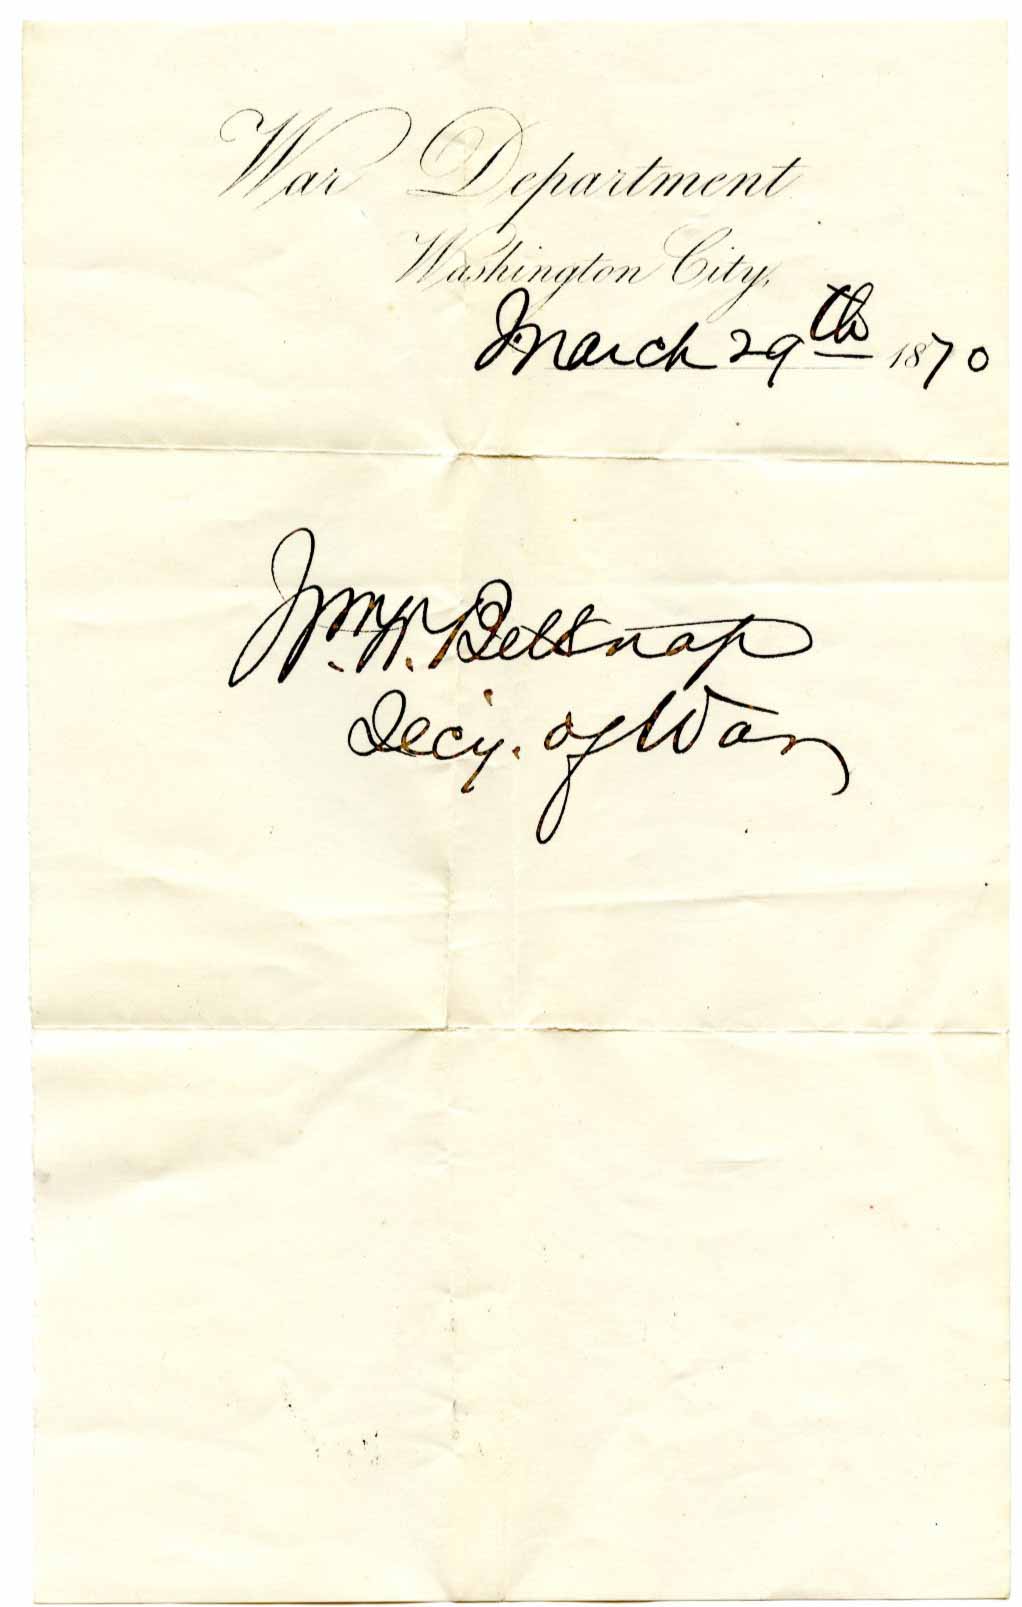 War Department
Washington City,
March 29th 1870
Wm. W. Belknap
Secy. of War